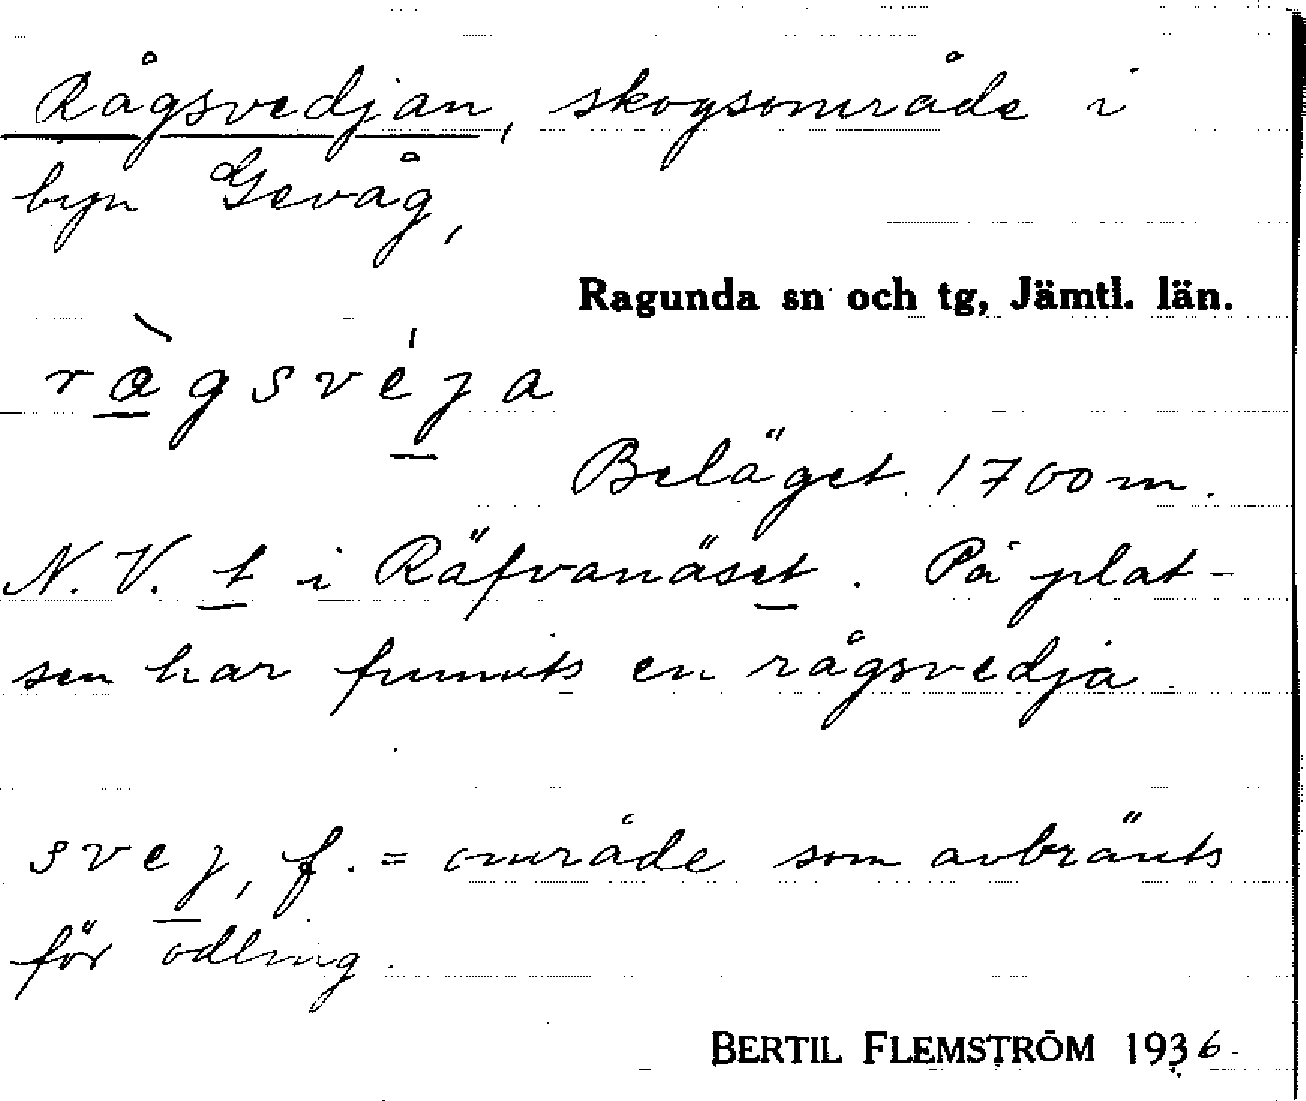 Rågsvedjan, skogsområde i
byn Gevåg,
Ragunda sn och tg, Jämtl. län.
ràgsvéja
Beläget 1700 m.
N.V. t i Räfvanäset. På plat-
sen har funnits en rågsvedja
svej, f. = område som avbränts
för odling.
BERTIL FLEMSTRÖM 1936